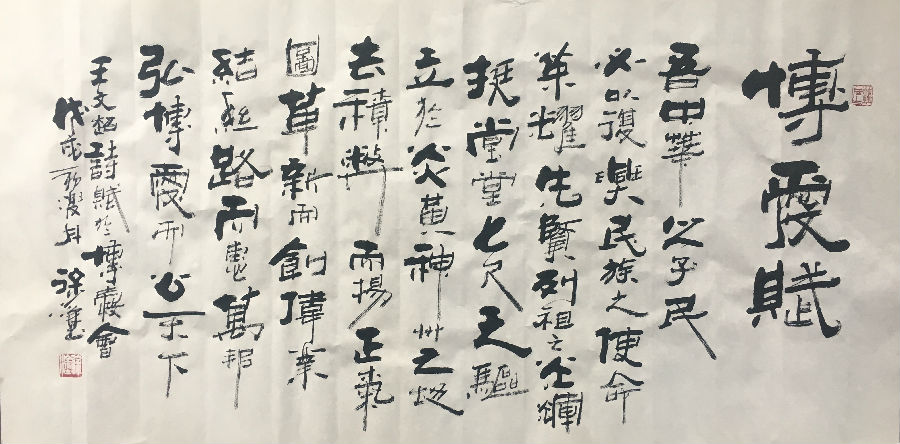 博愛賦
吾中華之子民
必以復興民族之使命
榮耀先賢列祖之光輝
挺堂堂七尺之軀
立於炎黃神州之地
去積弊而揚正氣
圖革新而創偉業
結絲路而惠萬邦
弘博愛而公天下
王文松詩賦於博愛會
戊戌初夏月徐